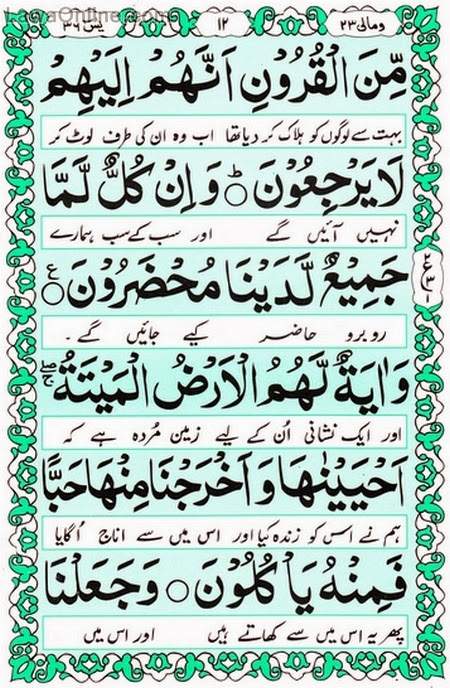 LawaOnline.com
ومالی ٢٣ ١٢ یٰسٓ ٣٦
مِّنَ الْقُرُوْنِ اَنَّهُمْ اِلَیْهِمْ
بہت سے لوگوں کو ہلاک کر دیا تھا اب وہ ان کی طرف لوٹ کر
لَا یَرْجِعُوْنَ ۝ؕ وَ اِنْ كُلٌّ لَّمَّا
نہیں آئیں گے اور سب کے سب ہمارے
جَمِیْعٌ لَّدَیْنَا مُحْضَرُوْنَ ۝ع
٢ ع ٣ ١
روبرو حاضر کیے جائیں گے۔
وَ اٰیَةٌ لَّهُمُ الْاَرْضُ الْمَیْتَةُ
اور ایک نشانی اُن کے لیے زمین مُردہ ہے کہ
اَحْیَیْنٰهَا وَ اَخْرَجْنَا مِنْهَا حَبًّا
ہم نے اس کو زندہ کیا اور اس میں سے اناج اُگایا
فَمِنْهُ یَاْكُلُوْنَ ۝ وَ جَعَلْنَا
پھر یہ اس میں سے کھاتے ہیں اور اس میں